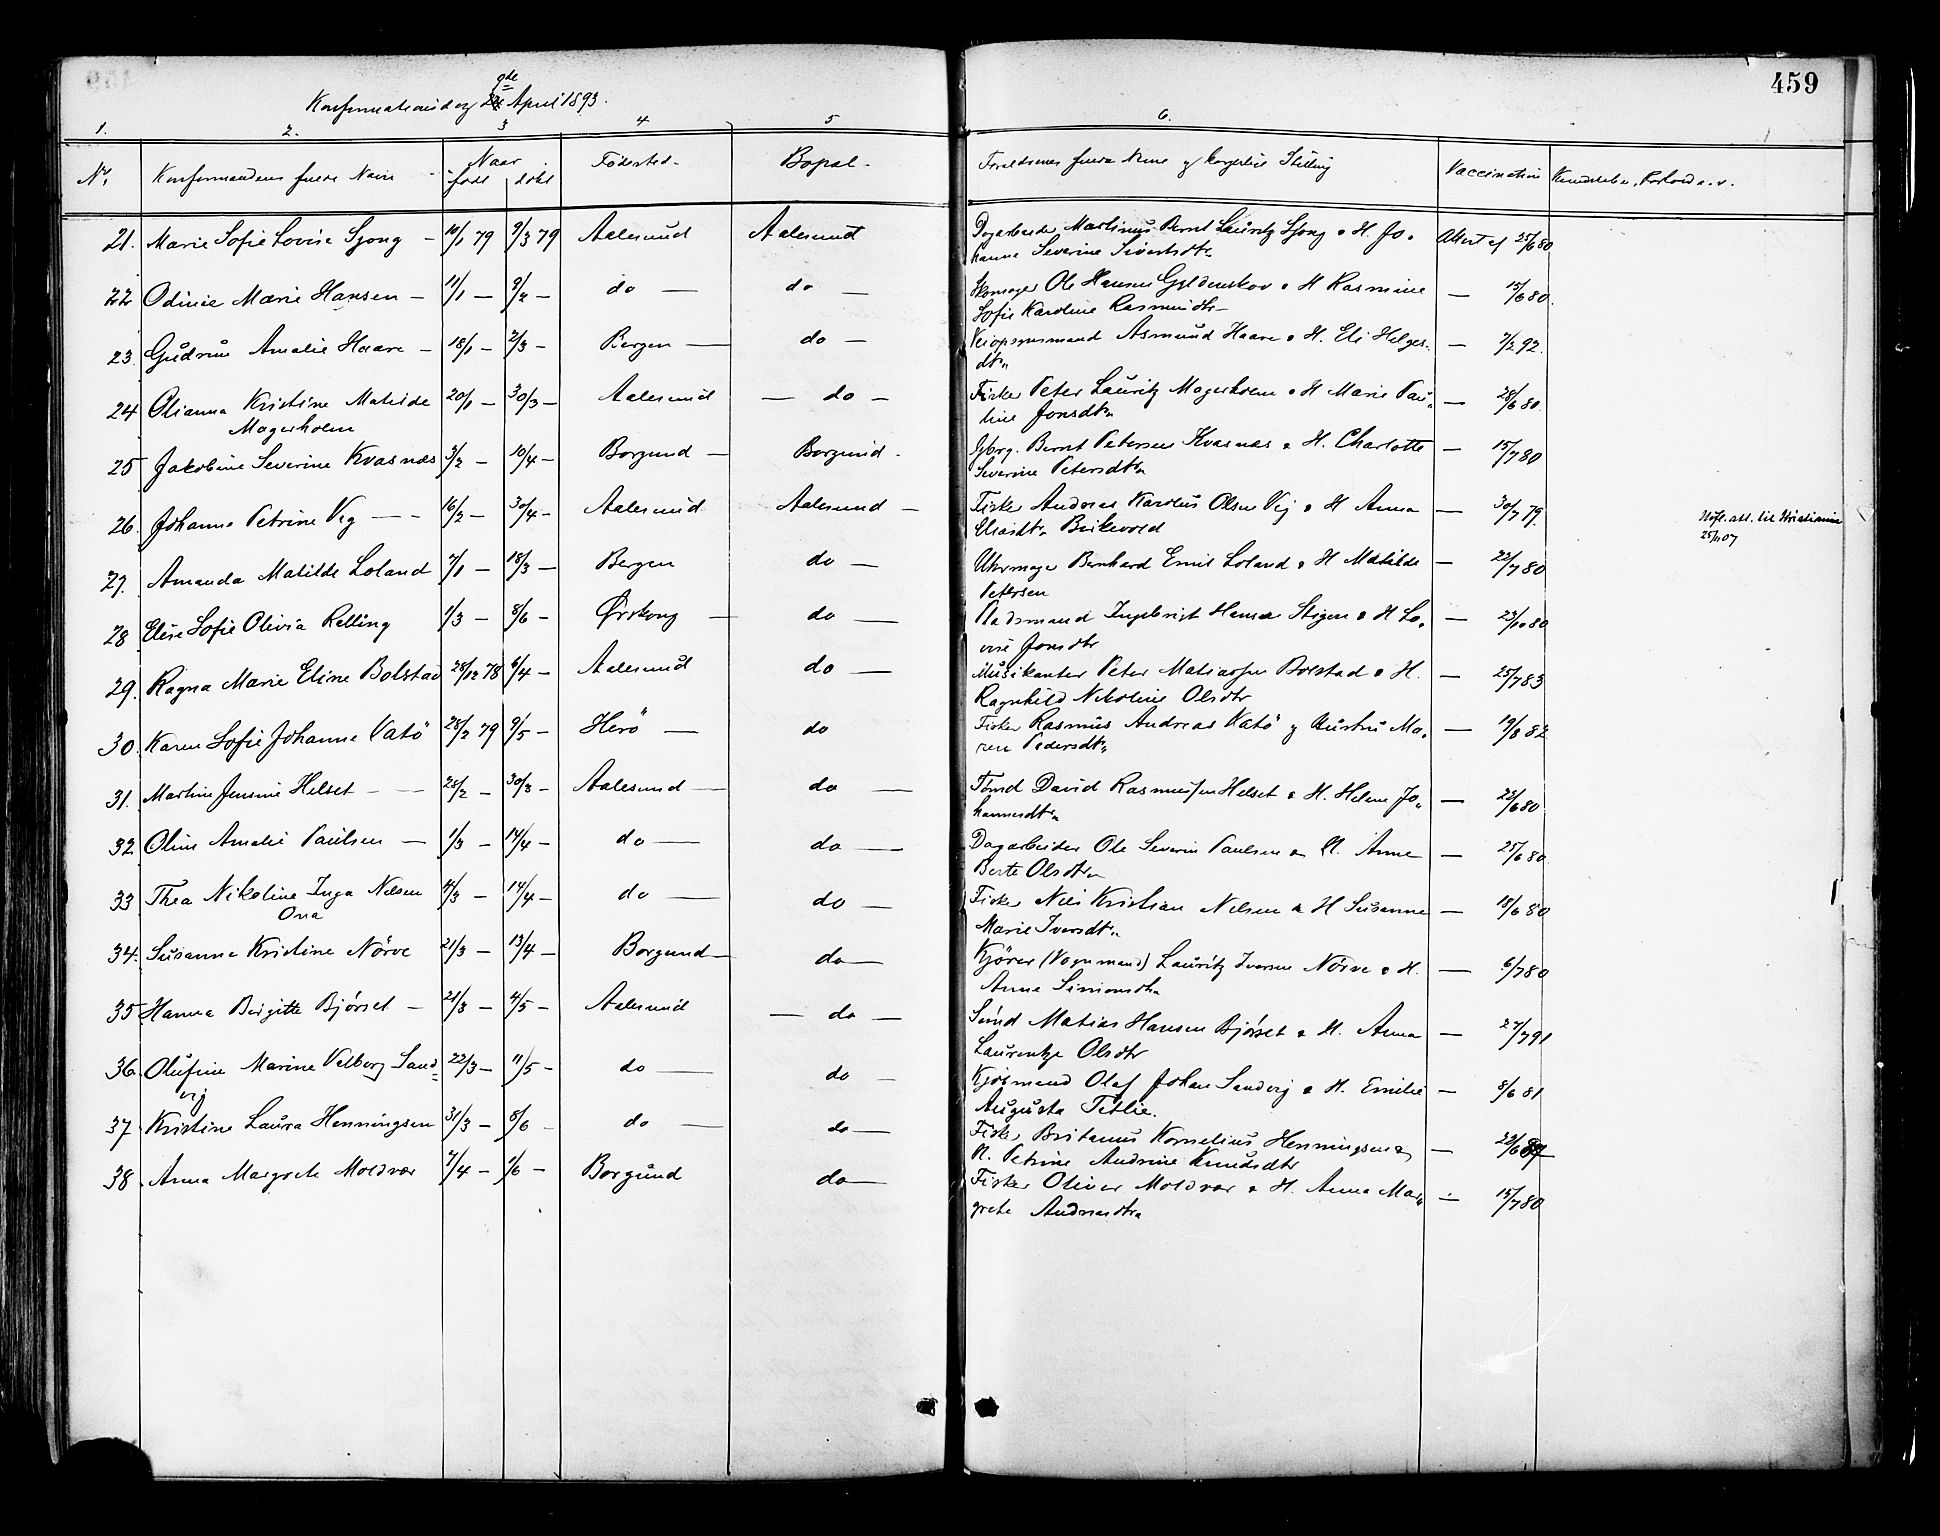 459
9de
Konfirmationsdag April 1893.
1. 2. 3 4 5 6.
No. Konfirmandens fulde Navn Naar født døbt Fødested Bopæl Forældrenes fulde Navne og borgerlige Stilling Vaccination Kundskaber, Forhold o. s. v.
21. Marie Sofie Lovise Sjong — 10/1 79 9/3 79 Aalesund Aalesund Dagarbeider Martinus Bernt Lauritz Sjong o H. Jo-
hanne Severine Sivertsdtr Attest af 25/6 80
22 Odinie Marie Hansen — 11/1 — 9/2 — do — do — Skomager Ole Hansen Gyldenskov o H Rasmine
Sofie Karoline Rasmusdtr — 15/6 80.
23. Gudrun Amalie Haare — 18/1 — 2/3 — Bergen — do — Veiopsynsmand Asmund Haare o H. Eli Helges-
dtr — 7/2 92.
24 Olianna Kristine Matilde 20/1 — 30/3 — Aalesund — do — Fisker Peter Lauritz Magerholm o H Marie Pau-
Magerholm line Jonsdtr — 28/6 80.
25 Jakobine Severine Kvasnæs 3/2 — 10/4 — Borgund — Borgund - Gbrg. Bernt Petersen Kvasnæs o H. Charlotte
Severine Petersdtr — 15/7 80
26. Johanne Petrine Veg — 16/2 — 30/4 — Aalesund Aalesund — Fisker Andreas Karolus Olsen Vej o H Anna
Eliasdtr Brikevold — 30/7 79. Utfl. att. til Kristiania
27. Amanda Matilde Loland 7/1 — 18/3 — Bergen do — Uhrmager Bernhard Emil Loland o H Matilde
Petersen — 22/7 80
28 Elise Sofie Olivia Relling 1/3 — 8/6 — Ørskoug — do — Pladsmand Ingebrigt Hansen Stigen o H Lo-
vise Jonsdtr — 23/10 80
29. Ragna Marie Eline Bolstad 28/12 78 6/4 — Aalesund do — Musikanter Peter Matiassen Bolstad o H.
Ragnhild Nikoline Olsdtr — 25/7 83
30. Karen Sofie Johanne Vatö 28/2 79 9/5 — Herö — do Fisker Rasmus Andreas Vatö og Hustru Ma-
ren Pedersdtr — 19/8 82
31. Martine Jensine Helset — 28/2 — 30/3 — Aalesund — do — Tömd David Rasmussen Helset o H. Helene Jo-
hannesdtr — 22/6 80
32 Oline Amalie Paulsen — 1/3 — 14/4 — do — do — Dagarbeider Ole Severin Paulsen o H. Anne
Berte Olsdtr — 25/6 80.
33 Thea Nikoline Inga Nilsen 4/3 — 14/4 — do — do — Fisker Nils Kristian Nilsen o H Susanne
Ona Marie Iversdtr — 18/6 80
34. Susanne Kristine Nörve 21/3 — 13/4 — Borgund — do — Kjörer (Vognmand) Lauritz Iversen Nörve o H.
Anne Simonsdtr — 6/7 80
35 Hanna Birgitte Bjørset — 21/3 — 4/5 — Aalesund — do — Sömd Matias Hansen Bjørset o H. Anna
Laurentze Olsdtr — 27/7 91
36. Olufine Marine Valborg Sand- 22/3 — 11/5 — do — do — Kjöbmand Olaf Johan Sandvig o H. Emilie
vig Augusta Tetlie. — 8/6 81
37. Kristine Laura Henningsen 31/3 — 8/6 — do — do — Fisker Britanus Kornelius Henningsen o
H. Petrine Andrine Knudsdtr —
38. Anna Margrete Moldvær 7/4 — 1/6 — Borgund do — Fisker Oliver Moldvær o H. Anna Mar-
grete Andreasdtr — 15/7 80